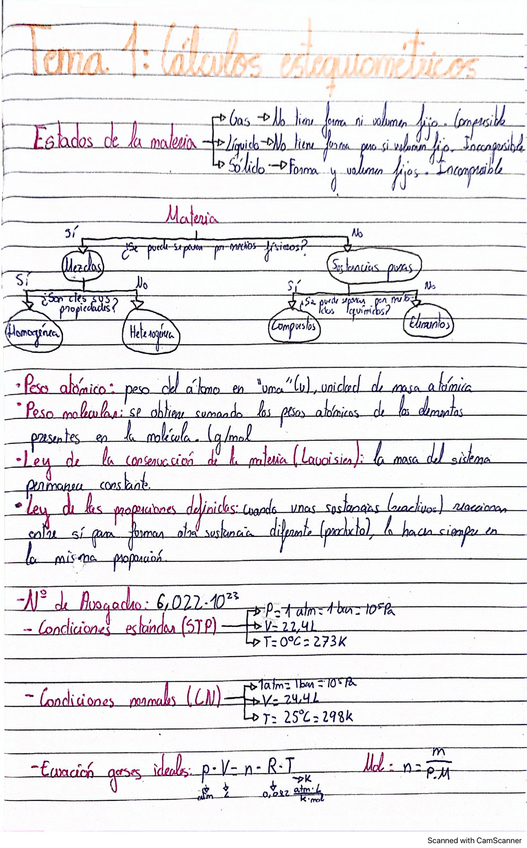 Tema 1: Cálculos estequiométricos
Estados de la materia
Gas → No tiene forma ni volumen fijo. Compresible
Líquido → No tiene forma pero si volumen fijo. Incompresible
Sólido → Forma y volumen fijos. Incompresible
Materia
Sí ¿Se puede separar por medios físicos? No
Mezclas Sustancias puras
Sí ¿Son ctes sus propiedades? No
Sí ¿Se puede separar por métodos químicos? No
Homogénea Heterogénea Compuestos Elementos
• Peso atómico: peso del átomo en "uma" (u), unidad de masa atómica
• Peso molecular: se obtiene sumando los pesos atómicos de los elementos
presentes en la molécula. (g/mol
• Ley de la conservación de la materia (Lavoisier): la masa del sistema
permanece constante.
• Ley de las proporciones definidas: cuando unas sustancias (reactivos) reaccionan
entre sí para formar otra sustancia diferente (producto), lo hacen siempre en
la misma proporción.
- Nº de Avogadro: 6,022·10²³
- Condiciones estándar (STP)
P = 1 atm = 1 bar = 10⁵ Pa
V = 22,4 L
T = 0°C = 273K
- Condiciones normales (CN)
1 atm = 1 bar = 10⁵ Pa
V = 24,4 L
T = 25°C = 298K
- Ecuación gases ideales: p · V = n · R · T Mol: n = m/P.M
atm L 0,082 atm·L/K·mol K
Scanned with CamScanner